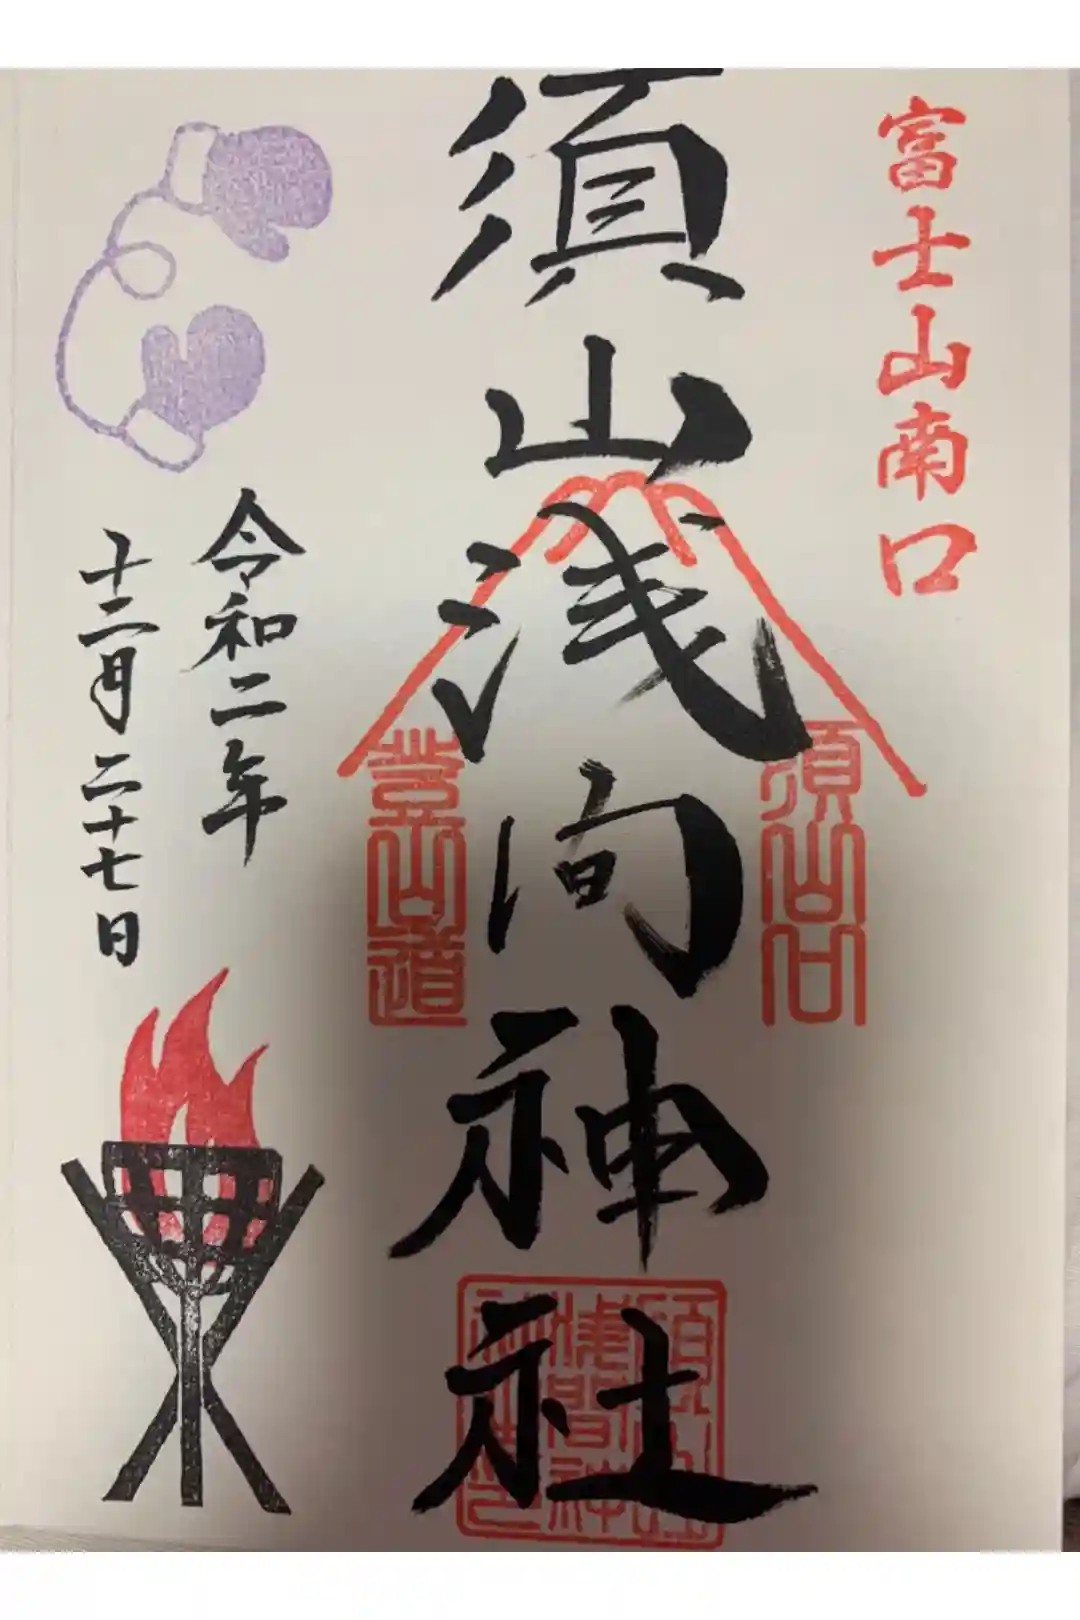 富士山南口
須山浅间神社
須山口
登山道
須山浅間神社之印
令和二年
十二月二十七日